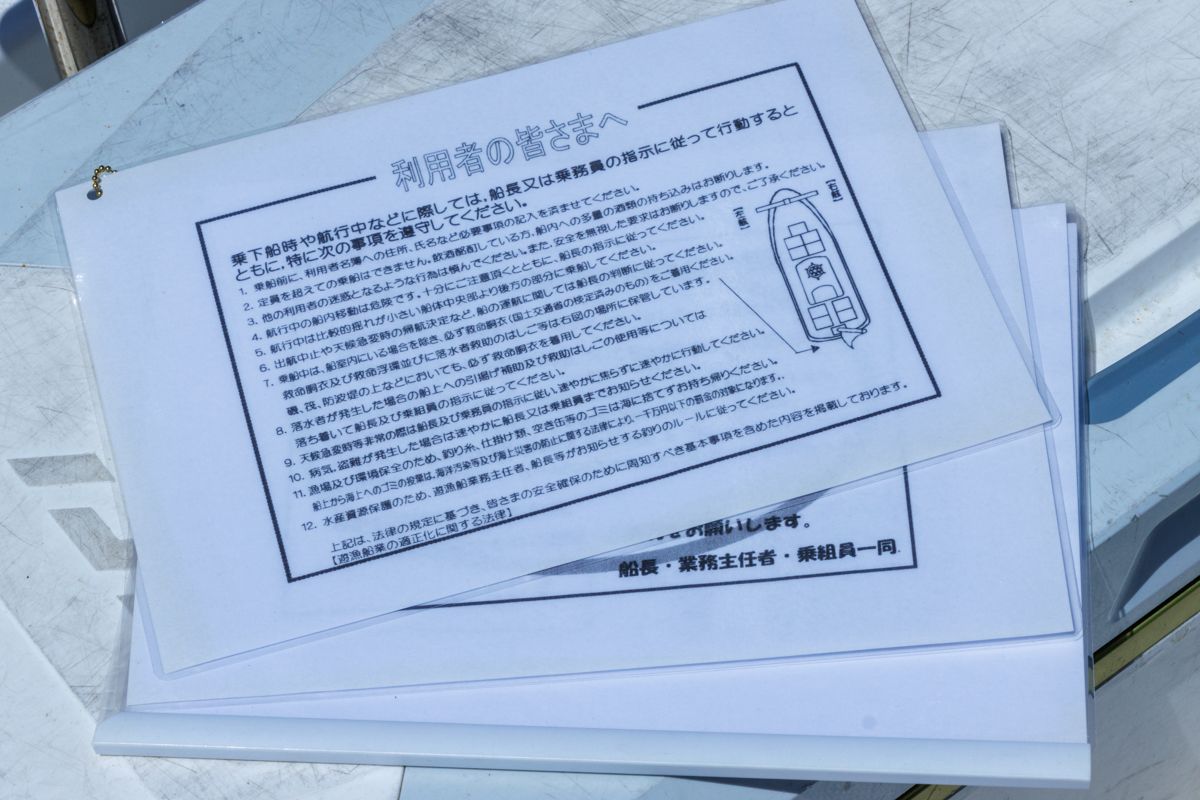 利用者の皆さまへ
乗下船時や航行中などに際しては、船長又は乗務員の指示に従って行動すると
ともに、特に次の事項を遵守してください。
1. 乗船前に、利用者名簿への住所、氏名など必要事項の記入を済ませてください。
2. 定員を超えての乗船はできません。飲酒酩酊している方、船内への多量の酒類の持ち込みはお断りします。
3. 他の利用者の迷惑となるような行為は慎んでください。また、安全を無視した要求はお断りしますので、ご了承ください。
4. 航行中の船内移動は危険です。十分にご注意頂くとともに、船長の指示に従ってください。
5. 航行中は比較的揺れが小さい船体中央部より後方の部分に乗船してください。
6. 出航中止や天候急変時の帰航決定など、船の運航に関しては船長の判断に従ってください。
7. 乗船中は、船室内にいる場合を除き、必ず救命胴衣(国土交通省の検定済みのもの)をご着用ください。
救命胴衣及び救命浮環並びに落水者救助のはしご等は右図の場所に保管しています。
磯、筏、防波堤の上などにおいても、必ず救命胴衣を着用してください。
8. 落水者が発生した場合の船上への引揚げ補助及び救助はしごの使用等については
落ち着いて船長及び乗組員の指示に従ってください。
9. 天候急変時等非常の際は船長及び乗務員の指示に従い、速やかに焦らずに速やかに行動してください。
10. 病気、盗難が発生した場合は速やかに船長又は乗組員までお知らせください。
11. 漁場及び環境保全のため、釣り糸、仕掛け類、空き缶等のゴミは海に捨てずお持ち帰りください。
船上から海上へのゴミの投棄は、海洋汚染等及び海上災害の防止に関する法律により、一千万円以下の罰金の対象になります。
12. 水産資源保護のため、遊漁船業務主任者、船長等がお知らせする釣りのルールに従ってください。
上記は、法律の規定に基づき、皆さまの安全確保のために周知すべき基本事項を含めた内容を掲載しております。
【遊漁船業の適正化に関する法律】
【左舷】
【右舷】
お願いします。
船長・業務主任者・乗組員一同.